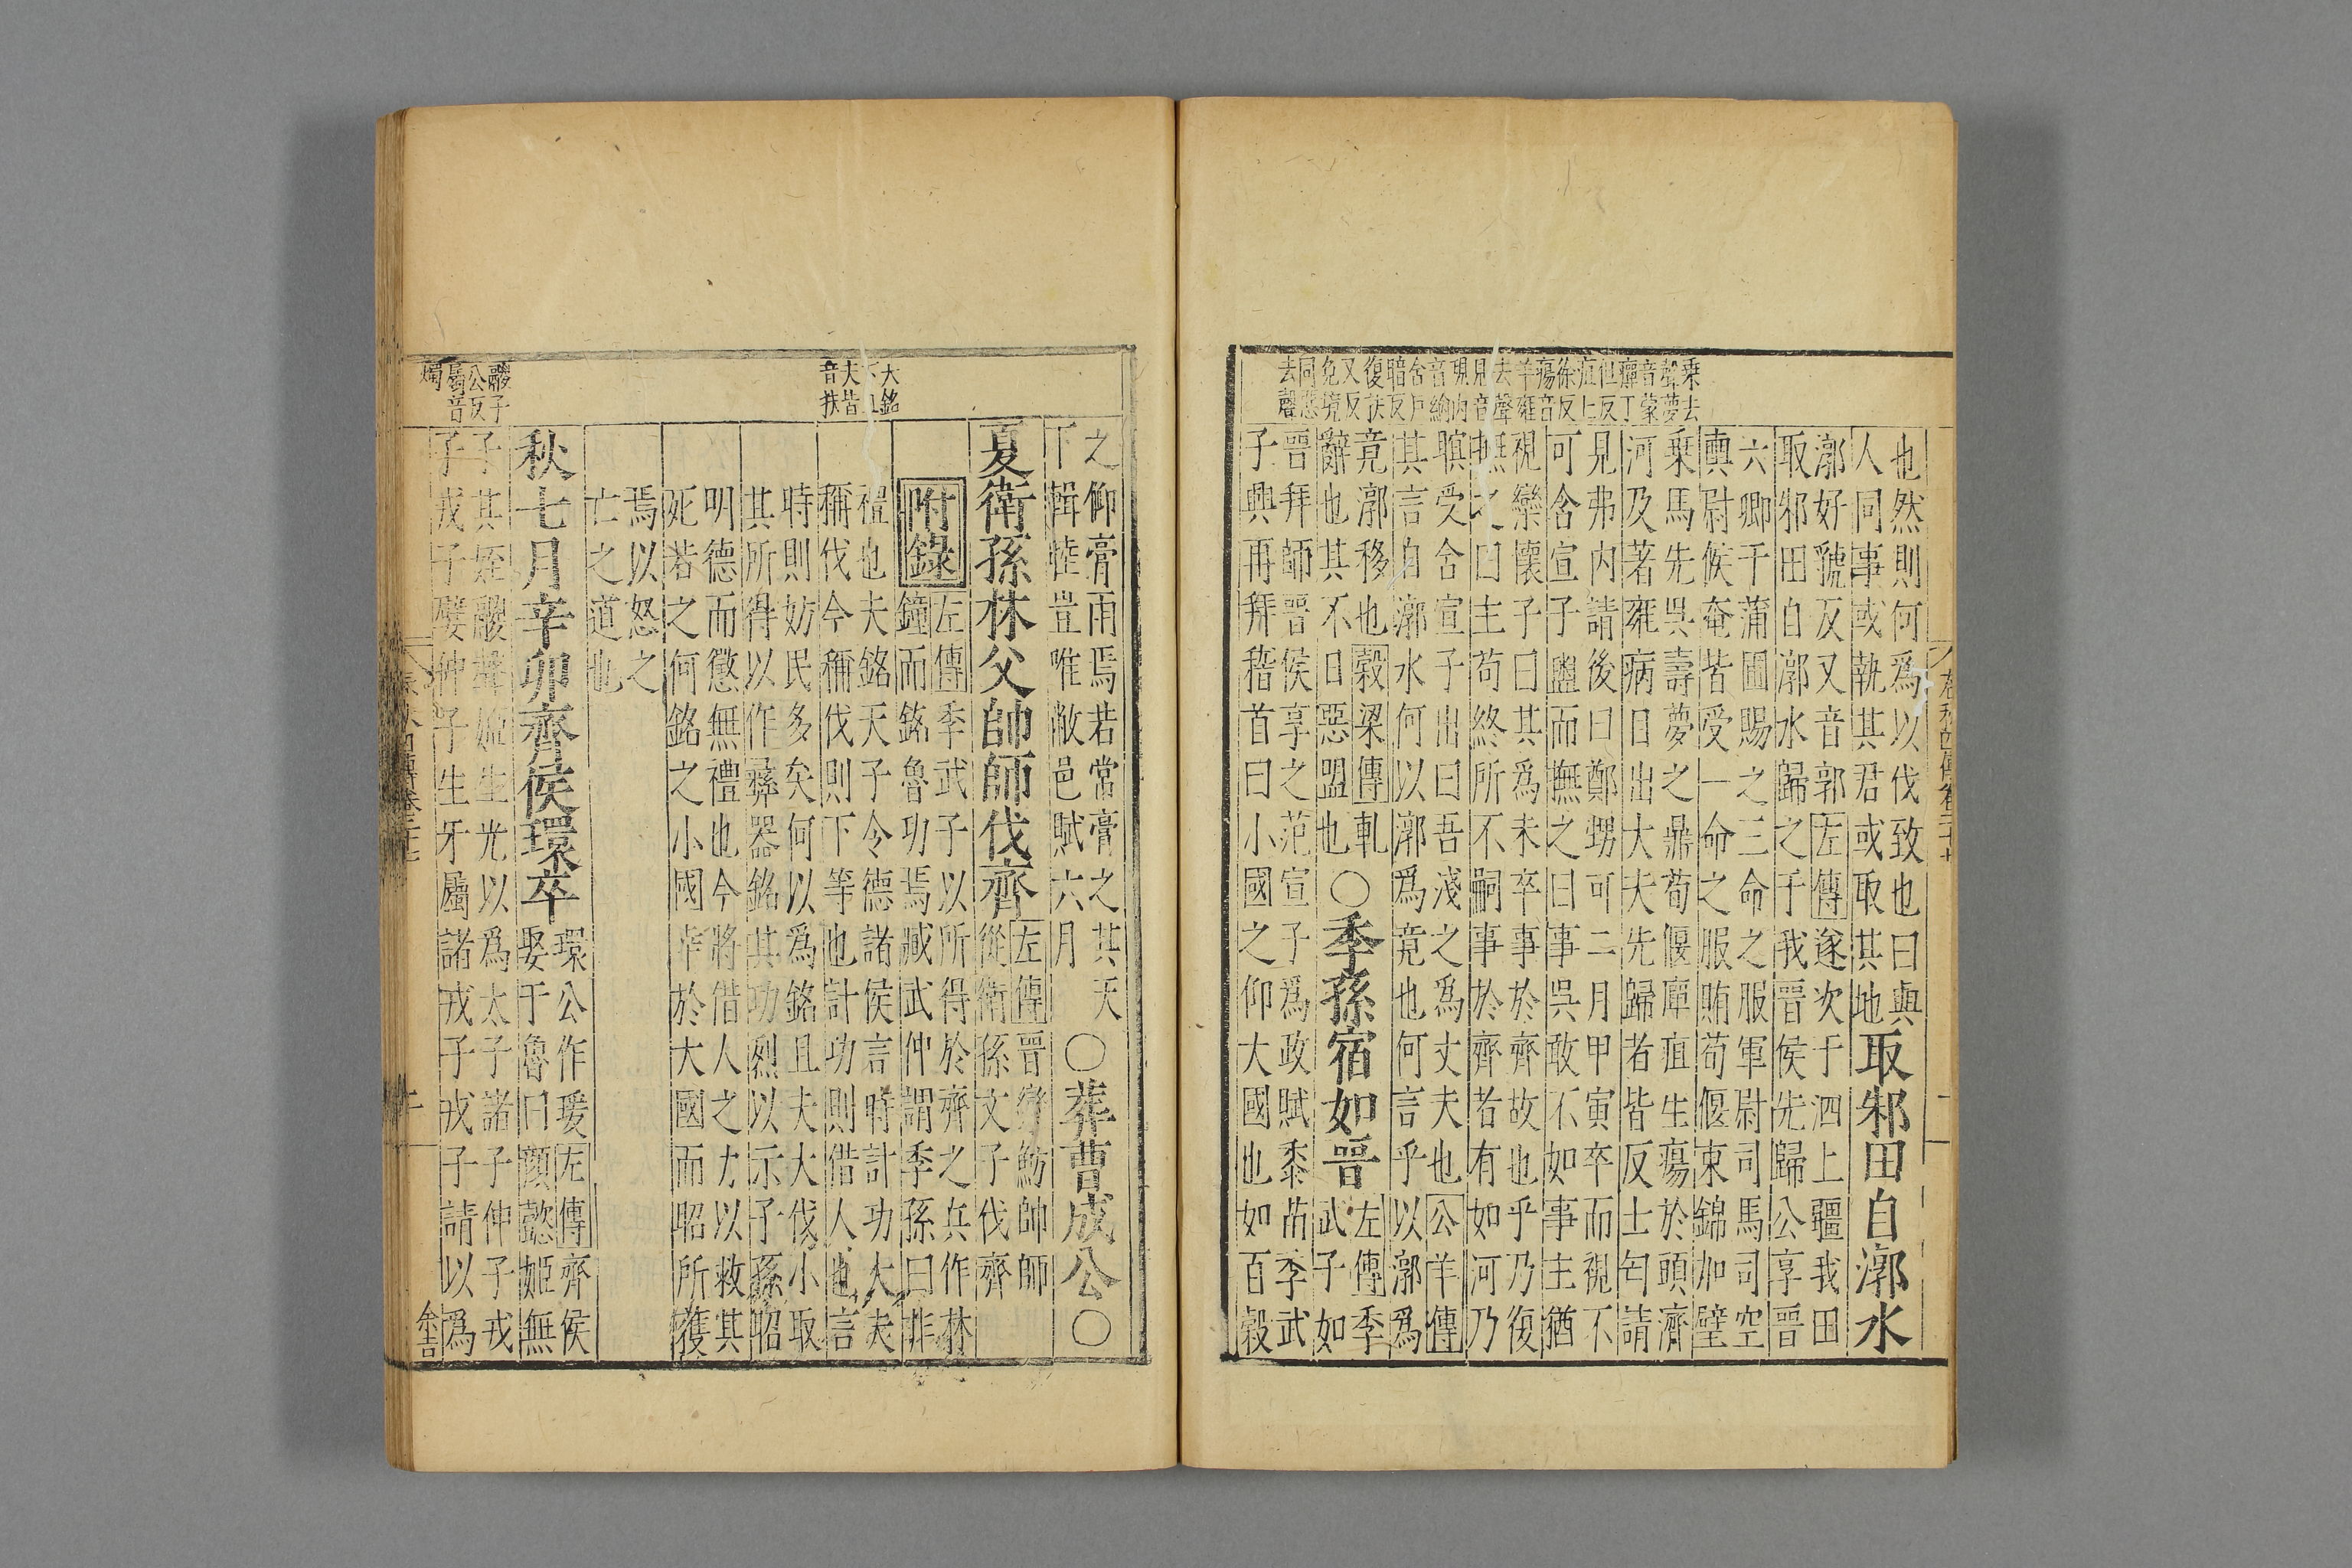 也然則何爲以伐致也曰與
人同事或執其君或取其地取邾田自漷水
漷好虢反又音郭左傳遂次于泗上疆我田
取邾田自漷水歸之于我晉侯先歸公享晉
六卿于蒲圃賜之三命之服軍尉司馬司空
輿尉候奄皆受一命之服賄荀偃束錦加璧
乗馬先吳壽夢之鼎荀偃癉疽生瘍於頭濟
河及著雍病目出大夫先歸者皆反士匄請
見弗内請後曰鄭甥可二月甲寅卒而視不
可含宣子盥而撫之曰事吳敢不如事主猶
視欒懷子曰其爲未卒事於齊故也乎乃復
撫之曰主苟終所不嗣事於齊者有如河乃
瞑受含宣子出曰吾淺之爲丈夫也公羊傳
其言自漷水何以漷爲竟也何言乎以漷爲
竟漷移也穀梁傳軋
辭也其不日惡盟也○季孫宿如晉
左傳季
武子如
晉拜師晉侯享之范宣子爲政賦黍苗季武
子興再拜稽首曰小國之仰大國也如百穀
乗去
聲夢
音蒙
癉丁
但反
疽上
徐反
瘍音
羊雍
去聲
見音
現内
音納
含户
暗反
復扶
又反
竟境
同惡
去聲
之仰膏雨焉若常膏之其天
下輯睦豈唯敝邑賦六月○葬曹成公○
夏衛孫林父帥師伐齊
左傳晉欒魴帥師
從衛孫文子伐齊
附錄
左傳季武子以所得於齊之兵作林
鐘而銘魯功焉臧武仲謂季孫曰非
禮也夫銘天子令德諸侯言時計功大夫
稱伐今稱伐則下等也計功則借人也言
時則妨民多矣何以爲銘且夫大伐小取
其所得以作彝器銘其功烈以示子孫昭
明德而懲無禮也今將借人之力以救其
死若之何銘之小國幸於大國而昭所獲
焉以怒之
亡之道也
秋七月辛卯齊侯環卒
環公作瑗左傳齊侯
娶于魯曰顏懿姬無
子其姪鬷聲姬生光以爲太子諸子仲子戎
子戎子嬖仲子生牙屬諸戎子戎子請以爲
大銘
下且
夫皆
音扶
鬷子
公反
屬音
燭